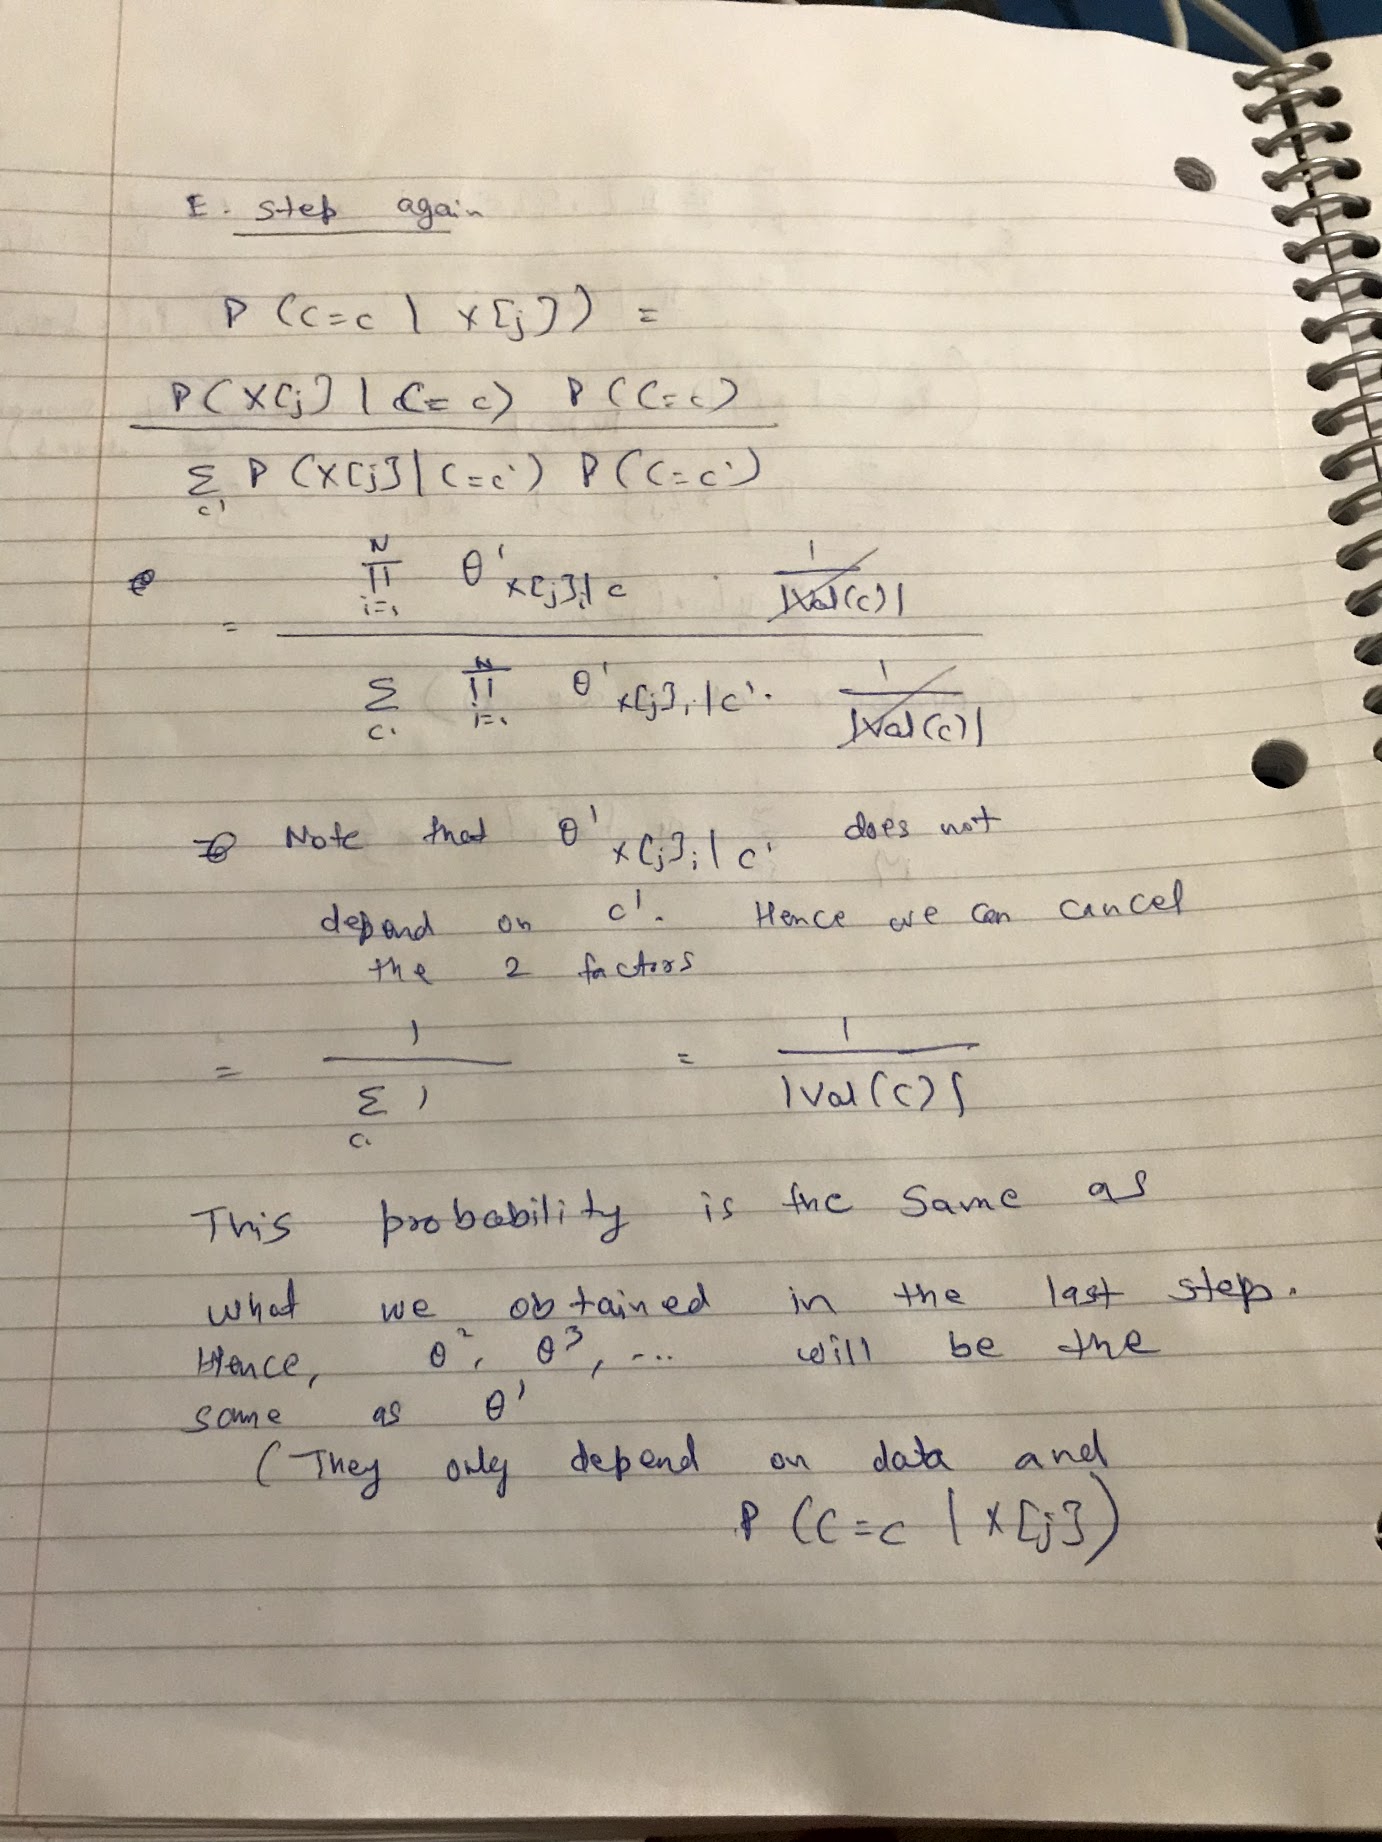 E. step again
P (C=c | X[j]) =
P(X[j] | C=c) P(C=c)
Σ P(X[j] | C=c') P(C=c')
c'
N
= Π θ' x[j]i|c · 1
i=1 |Val(c)|
Σ Π θ' x[j]i|c' · 1
c' i=1 |Val(c)|
N
Note that θ' x[j]i|c' does not
depend on c'. Hence we can cancel
the 2 factors
= 1 = 1
Σ 1 |Val(C)|
c'
This probability is the same as
what we obtained in the last step.
Hence, θ², θ³, ... will be the
same as θ'
(They only depend on data and
P(C=c | X[j])